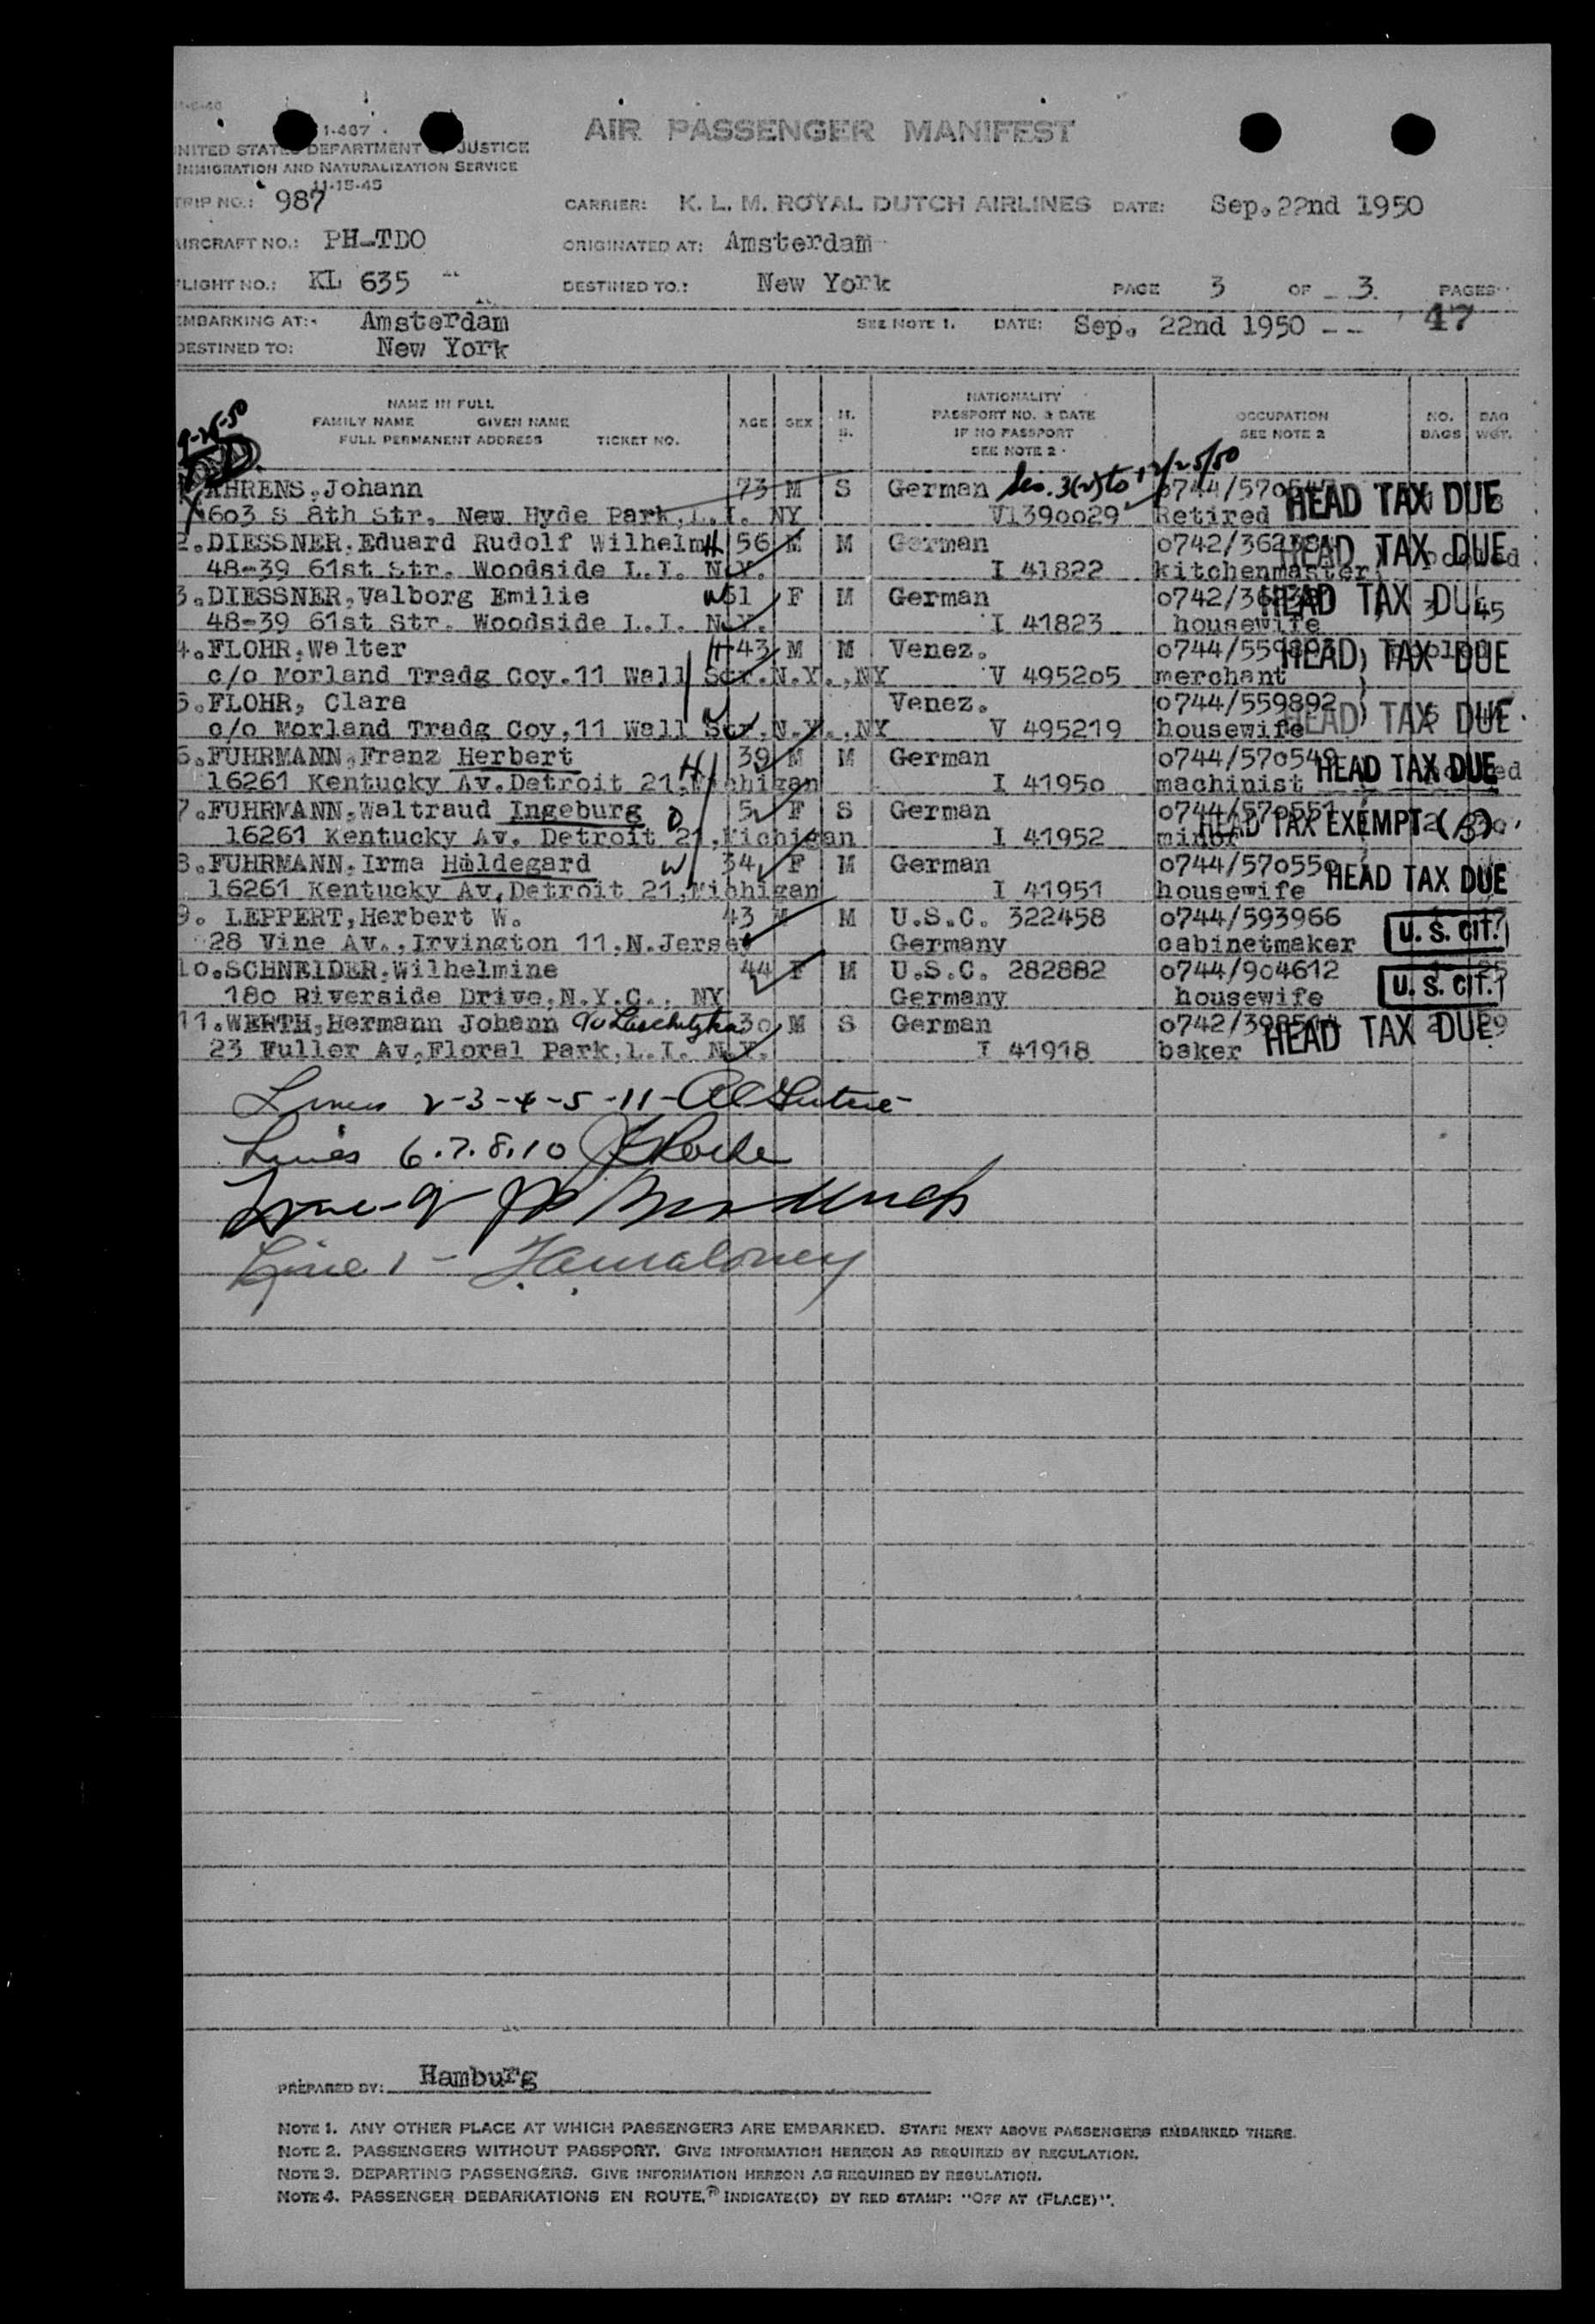 1-467
UNITED STATES DEPARTMENT OF JUSTICE
IMMIGRATION AND NATURALIZATION SERVICE
11-15-45
AIR PASSENGER MANIFEST
TRIP NO.: 987
CARRIER: K. L. M. ROYAL DUTCH AIRLINES DATE: Sep. 22nd 1950
AIRCRAFT NO.: PH-TDO
ORIGINATED AT: Amsterdam
FLIGHT NO.: KL 635
DESTINED TO.: New York PAGE 3 OF 3. PAGES
EMBARKING AT: Amsterdam SEE NOTE 1. DATE: Sep. 22nd 1950 -- 47
DESTINED TO: New York
NAME IN FULL
FAMILY NAME GIVEN NAME
FULL PERMANENT ADDRESS TICKET NO.
AGE SEX M. S.
NATIONALITY
PASSPORT NO. & DATE
IF NO PASSPORT
SEE NOTE 2
OCCUPATION
SEE NOTE 2
NO. BAGS BAG WGT.
9-25-50
AHRENS, Johann 73 M S German Sec. 3(2) to 12/25/50 HEAD TAX DUE
603 S 8th Str. New Hyde Park, L.I. NY V1390029 Retired
2. DIESSNER, Eduard Rudolf Wilhelm H 56 M M German HEAD TAX DUE
48-39 61st Str. Woodside L.I. N.Y. I 41822 kitchenmaster
3. DIESSNER, Valborg Emilie W 51 F M German HEAD TAX DUE 45
48-39 61st Str. Woodside L.I. N.Y. I 41823 housewife
4. FLOHR, Walter H 43 M M Venez. HEAD TAX DUE
c/o Norland Tradg Coy. 11 Wall Str. N.Y., NY V 495205 merchant
5. FLOHR, Clara W Venez. 0744/559892 HEAD TAX DUE
c/o Norland Tradg Coy, 11 Wall Str. N.Y., NY V 495219 housewife
6. FUHRMANN, Franz Herbert H 39 M M German 0744/570549 HEAD TAX DUE
16261 Kentucky Av. Detroit 21, Michigan I 41950 machinist
7. FUHRMANN, Waltraud Ingeburg D 5 F S German 0744/570551 HEAD TAX EXEMPT
16261 Kentucky Av. Detroit 21, Michigan I 41952 minor
8. FUHRMANN, Irma Hildegard W 34 F M German 0744/570550 HEAD TAX DUE
16261 Kentucky Av, Detroit 21, Michigan I 41951 housewife
9. LEPPERT, Herbert W. 43 M M U.S.C. 322458 0744/593966 U. S. CIT.
28 Vine Av., Irvington 11, N. Jersey Germany cabinetmaker
10. SCHNEIDER, Wilhelmine 44 F M U.S.C. 282882 0744/904612 U. S. CIT.
180 Riverside Drive, N.Y.C., NY Germany housewife
11. WERTH, Hermann Johann 30 M S German HEAD TAX DUE
23 Fuller Av, Floral Park, L.I. N.Y. I 41918 baker
Lines 2-3-4-5-11-
Lines 6.7.8.10
Line-9
Line 1 - Maloney
PREPARED BY: Hamburg
NOTE 1. ANY OTHER PLACE AT WHICH PASSENGERS ARE EMBARKED. STATE NEXT ABOVE PASSENGERS EMBARKED THERE.
NOTE 2. PASSENGERS WITHOUT PASSPORT. GIVE INFORMATION HEREON AS REQUIRED BY REGULATION.
NOTE 3. DEPARTING PASSENGERS. GIVE INFORMATION HEREON AS REQUIRED BY REGULATION.
NOTE 4. PASSENGER DEBARKATIONS EN ROUTE, INDICATE(D) BY RED STAMP: "OFF AT (PLACE)".